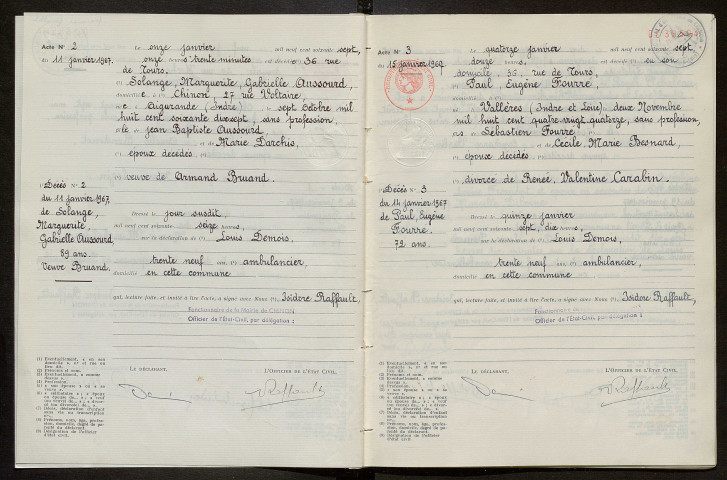 Acte N° 2
du 11 janvier 1967.
Le onze janvier mil neuf cent soixante sept,
onze heures trente minutes est décédé 36 rue
de Tours,
Solange, Marguerite, Gabrielle Aussourd,
domicilié e à Chinon, 27 rue Voltaire,
né e à Aigurande (Indre) le sept octobre mil
huit cent soixante dix sept, sans profession,
fille de Jean Baptiste Aussourd,
et de Marie Darchis,
époux décédés
veuve de Armand Bruand.
Décès N° 2
du 11 janvier 1967.
de Solange,
Marguerite,
Gabrielle Aussourd,
89 ans.
Veuve Bruand.
Dressé le jour susdit,
mil neuf cent soixante seize heures,
sur la déclaration de Louis Demois,
trente neuf ans, ambulancier,
domicilié en cette commune
qui, lecture faite, et invité à lire l'acte, a signé avec Nous Isidore Raffault,
Fonctionnaire de la Mairie de CHINON
Officier de l'Etat-Civil, par délégation :
LE DÉCLARANT,
L'OFFICIER DE L'ÉTAT CIVIL,
Raffault
Acte N° 3
du 15 janvier 1967
Le quatorze janvier mil neuf cent soixante sept
douze heures, est décédé en son
domicile, 36, rue de Tours,
Paul, Eugène Fourré,
né à Vallères (Indre et Loire) deux Novembre
mil huit cent quatre-vingt quatorze, sans profession,
fils de Sébastien Fourré
et de Cécile Marie Besnard,
époux décédés
divorcé de Renée, Valentine Carabin.
Décès N° 3
du 14 janvier 1967
de Paul, Eugène
Fourré.
72 ans.
Dressé le quinze janvier
mil neuf cent soixante sept, dix heures,
sur la déclaration de Louis Demois,
trente neuf ans, ambulancier,
domicilié en cette commune
qui, lecture faite, et invité à lire l'acte, a signé avec Nous Isidore Raffault,
Officier de l'Etat-Civil, par délégation :
LE DÉCLARANT,
L'OFFICIER DE L'ÉTAT CIVIL,
Raffault